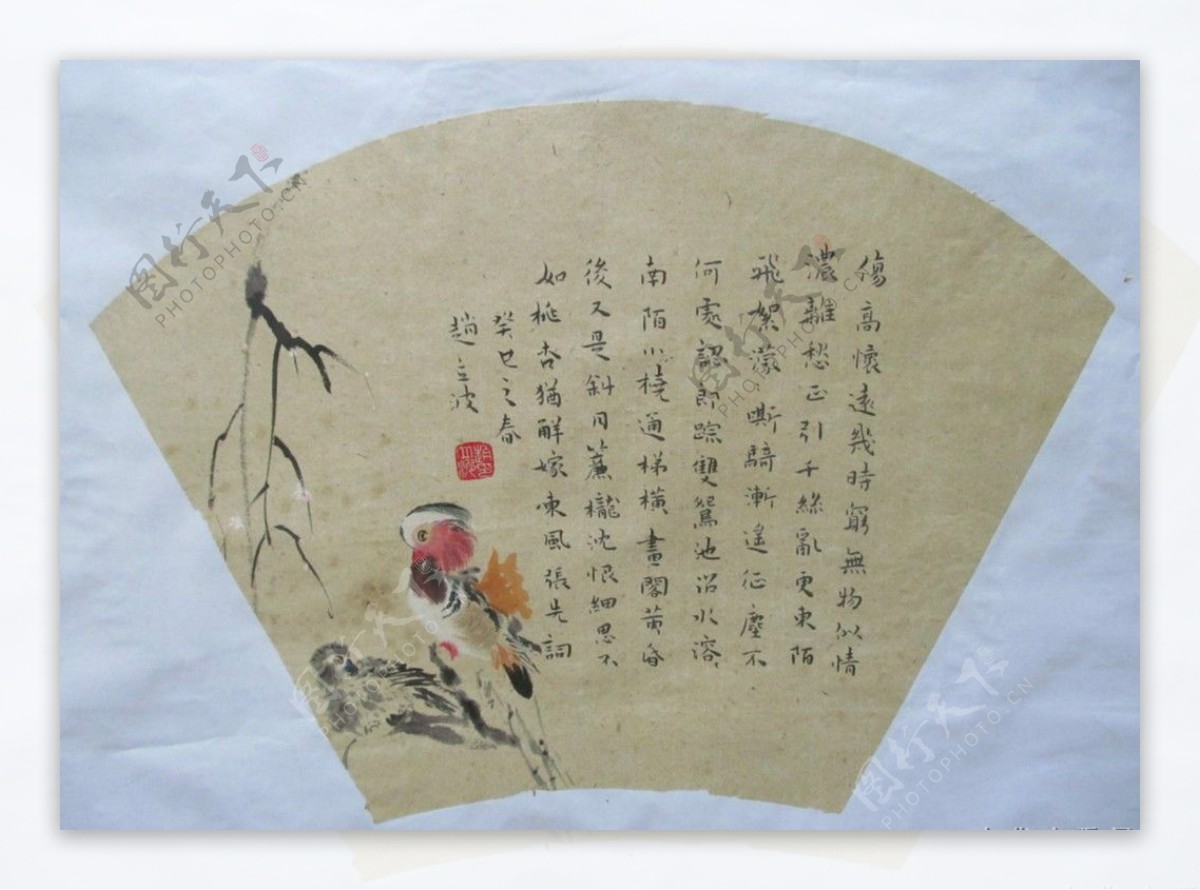 傷高懷遠幾時窮無物似情
濃離愁正引千絲亂更東陌
飛絮濛嘶騎漸遙征塵不
何處認郎踪雙鴛池沼水溶
南陌小橈通梯橫畫閣黃昏
後又是斜月簾櫳沈恨細思不
如桃杏猶解嫁東風張先詞
癸巳之春
趙立波
图行天下
PHOTOPHOTO.CN
图行天下
PHOTOPHOTO.CN
图行天下
PHOTOPHOTO.CN